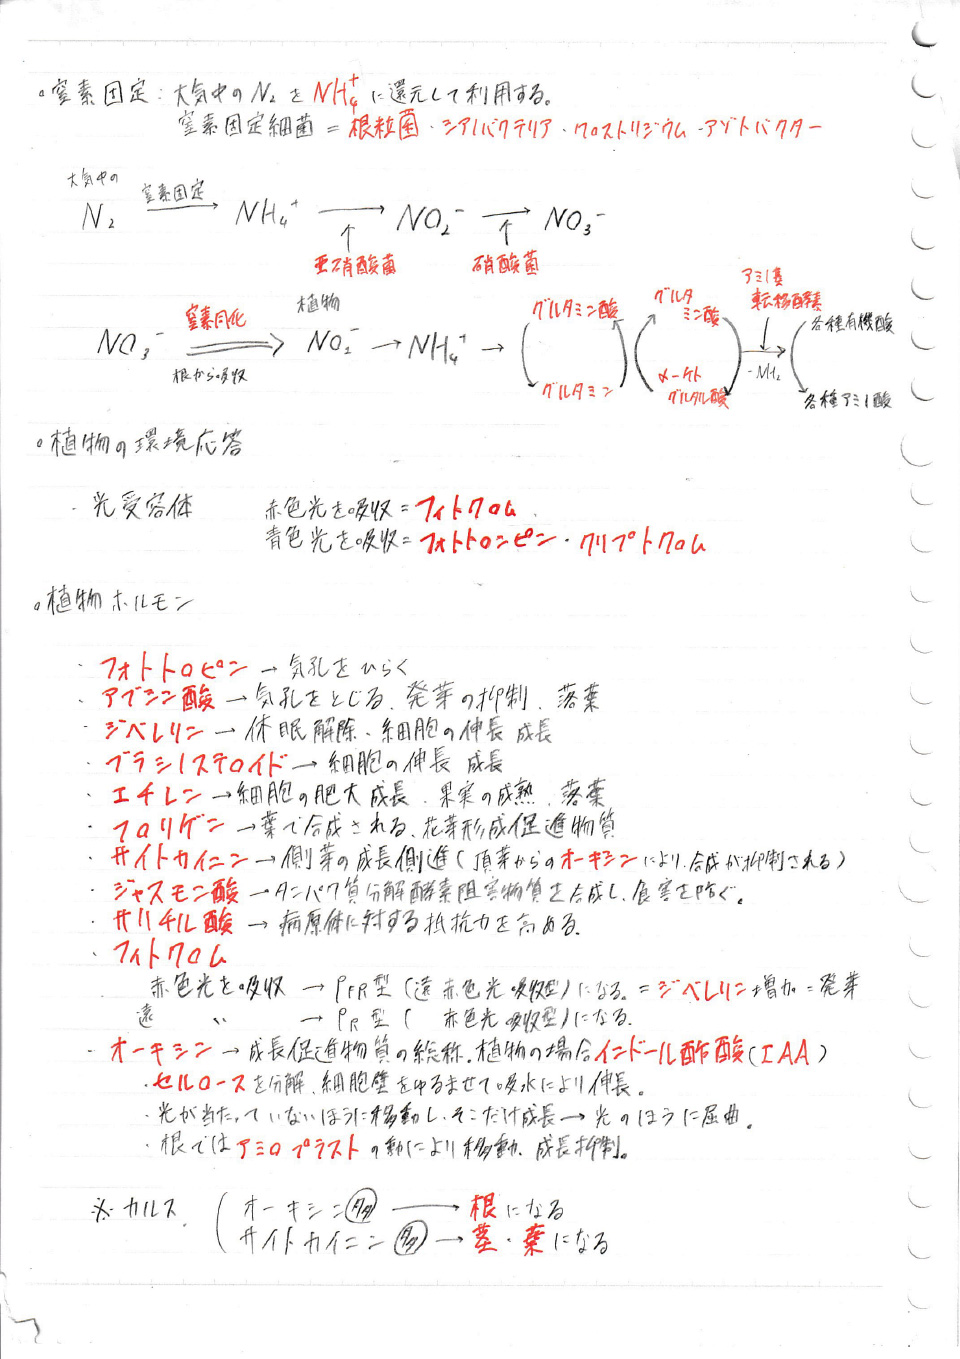 。窒素固定：大気中のN₂をNH₄⁺に還元して利用する。
窒素固定細菌＝根粒菌・シアノバクテリア・クロストリジウム・アゾトバクター
大気中の
N₂ 窒素固定→ NH₄⁺ → NO₂⁻ → NO₃⁻
↑亜硝酸菌 ↑硝酸菌
NO₃⁻ 窒素同化 ⇒ 植物 NO₂⁻ → NH₄⁺ →
根から吸収
グルタミン酸
グルタミン
グルタミン酸
α-ケトグルタル酸
アミノ基転移酵素
-NH₂
各種有機酸
各種アミノ酸
。植物の環境応答
・光受容体 赤色光を吸収＝フィトクロム
青色光を吸収＝フォトトロンピン・クリプトクロム
。植物ホルモン
・フォトトロピン→気孔をひらく
・アブシシン酸→気孔をとじる、発芽の抑制、落葉
・ジベレリン→休眠解除、細胞の伸長成長
・ブラシノステロイド→細胞の伸長成長
・エチレン→細胞の肥大成長、果実の成熟、落葉
・フロリゲン→葉で合成される、花芽形成促進物質
・サイトカイニン→側芽の成長側進（頂芽からのオーキシンにより、合成が抑制される）
・ジャスモン酸→タンパク質分解酵素阻害物質を合成し、食害を防ぐ。
・サリチル酸→病原体に対する抵抗力を高める。
・フィトクロム
赤色光を吸収→PFR型（遠赤色光吸収型）になる。＝ジベレリン増加＝発芽
遠 〃 →PR型（赤色光吸収型）になる。
・オーキシン→成長促進物質の総称。植物の場合インドール酢酸（IAA）
・セルロースを分解、細胞壁をゆるませて吸水により伸長。
・光が当たっていないほうに移動し、そこだけ成長→光のほうに屈曲。
・根ではアミロプラストの動により移動、成長抑制。
※カルス（オーキシン多→根になる
サイトカイニン多→茎・葉になる